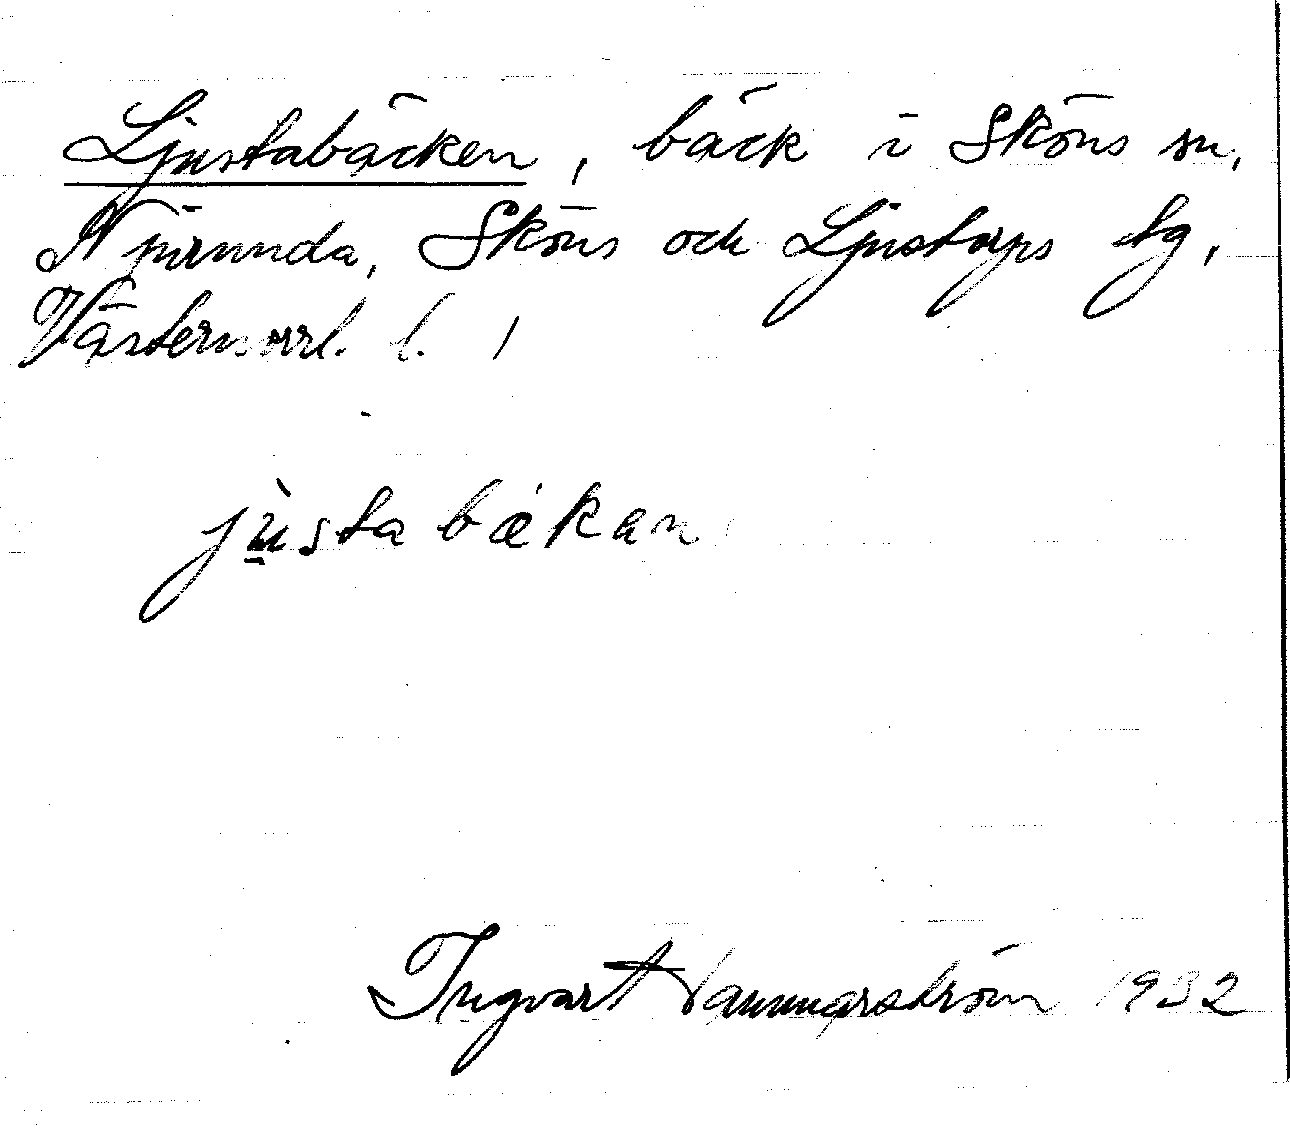 Ljustabäcken, bäck i Sköns sn,
Njurunda, Sköns och Ljustorps tg,
Västernorrl. l.
jùstabækan
Ingvart 1932